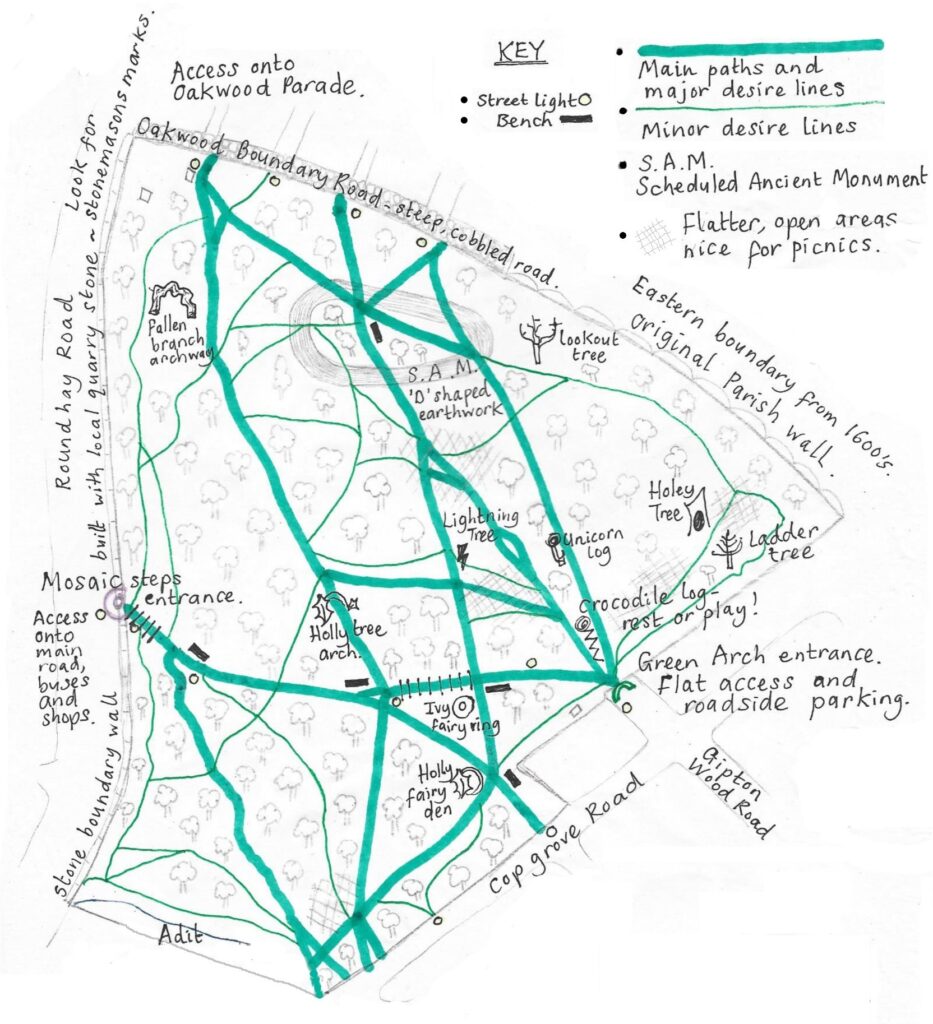 Access onto
Oakwood Parade.
KEY
Street light
Bench
Main paths and
major desire lines
Minor desire lines
S.A.M.
Scheduled Ancient Monument
Flatter, open areas
nice for picnics.
Look for
Roundhay Road
built with local quarry stone ~ stonemasons marks.
Oakwood Boundary Road - steep, cobbled road.
Eastern boundary from 1600's.
original Parish wall.
Fallen
branch
archway
Lookout
tree
S.A.M.
'D' shaped
earthwork
Lightning
Tree
Unicorn
log
Holey
Tree
Ladder
tree
Mosaic steps
entrance.
Access
onto
main
road,
buses
and
shops.
Holly tree
arch.
Crocodile log-
rest or play!
Green Arch entrance.
Flat access and
roadside parking.
Ivy
fairy ring
Holly
fairy
den
Gipton
Wood Road
Copgrove Road
stone boundary wall
Adit